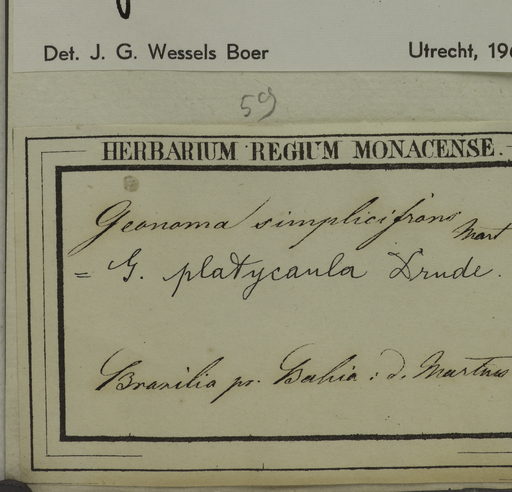 Det. J. G. Wessels Boer Utrecht, 196
59
HERBARIUM REGIUM MONACENSE.
Geonoma simplicifrons Mart
= G. platycaula Drude.
Brasilia pr. Bahia: d. Martius